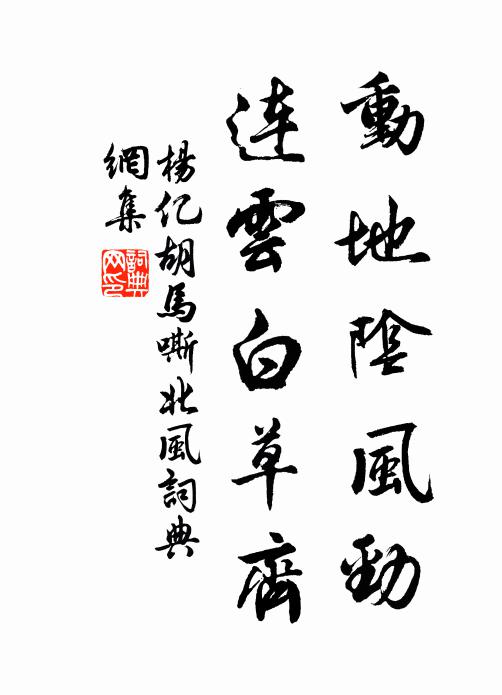 動地陰風勁
連雲白草齊
楊亿胡馬嘶北風詞典
網集
詞典
网印